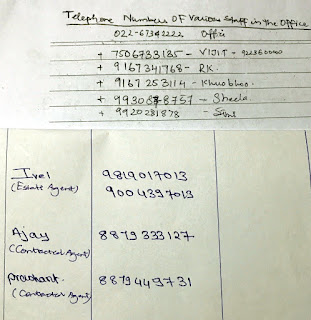 Telephone Numbers OF Various Staff in the Office
022-67342222 Office
+ 7506733135 - VIJIT - 9223600000
+ 9167341768 - RK.
+ 9167253114 - Khushboo.
+ 9930878757 - Sheela
+ 9920231878 -
Ivel 9819017013
(Estate Agent) 9004397013
Ajay 8879333127
(Contracted Agent)
prashant. 8879449731
(Contracted Agent)